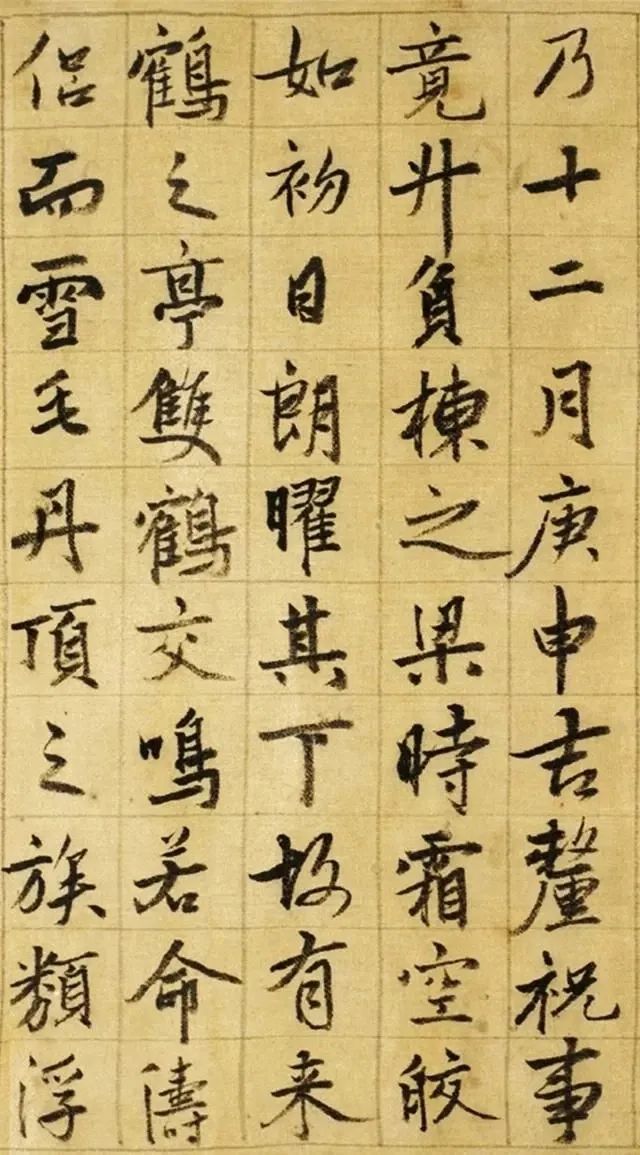 乃十二月庚申吉釐祝事
竟升負棟之梁時霜空皎
如初日朗曜其下故有来
鶴之亭雙鶴交鳴若命儔
侶而雪毛丹頂之族類浮